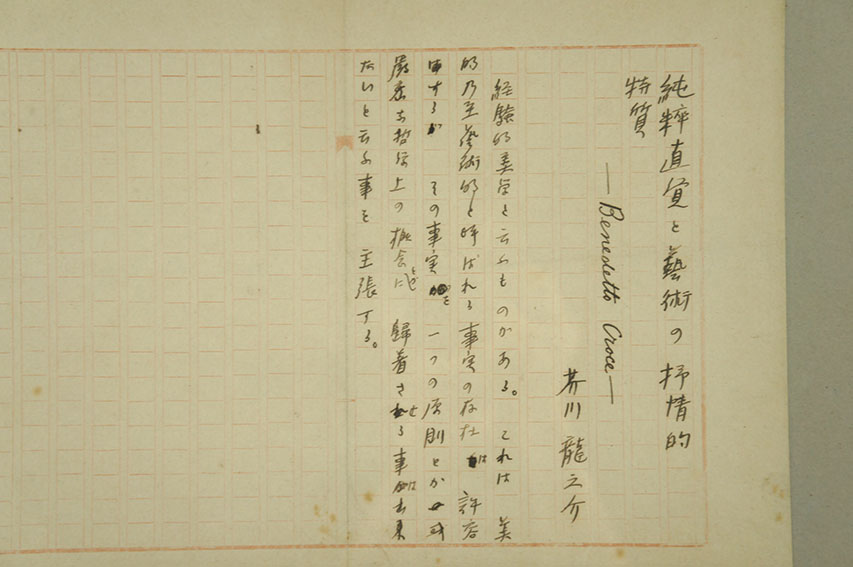 純粋直覚と藝術の抒情的
特質
―Benedetto Croce―
芥川龍之介
経験的美学と云ふものがある。これは 美
的乃至藝術的と呼ばれる事実の存在は 許容
するが その事実を 一つの原則とか
厳密な哲学上の概念に 歸着させる事は出来
ないと云ふ事を 主張する。